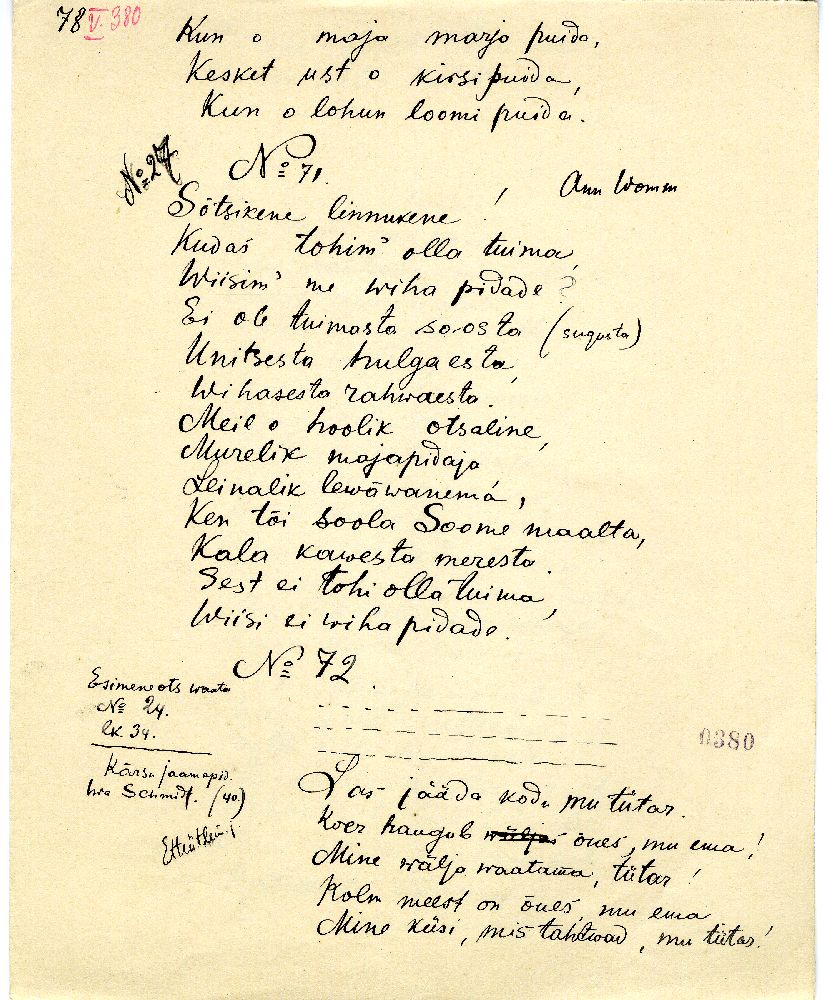 78 V. 380
Kun o maja marja puida,
Kesket ust o kirsi puida,
Kun o lohun loomi puida.
№ 27
№ 71.
Ann Womm
Sõtsikene linnukene!
Kudas tohim' olla tuima,
Wiisim' me wiha pidade?
Ei ole tuimasta soosta (sugusta)
Unitsesta hulgaesta,
Wihasesta rahwaesta.
Meil o hoolik otsaline,
Murelik majapidaja
Leinalik lewäwanema,
Ken tõi soola Soome maalta,
Kala kawesta meresta.
Sest ei tohi olla tuima,
Wiisi ei wiha pidade.
№ 72.
Esimene ots waata
№ 24.
lk. 34.
Kärsa jaamapid.
hra Schmidt. (40.)
0380
Las jääda kodu mu tütar.
Koer haugub wäljas õues, mu ema!
Mine wälja waatama, tütar!
Kolm meest on õues, mu ema
Mine küsi, mis tahtwad, mu tütar!